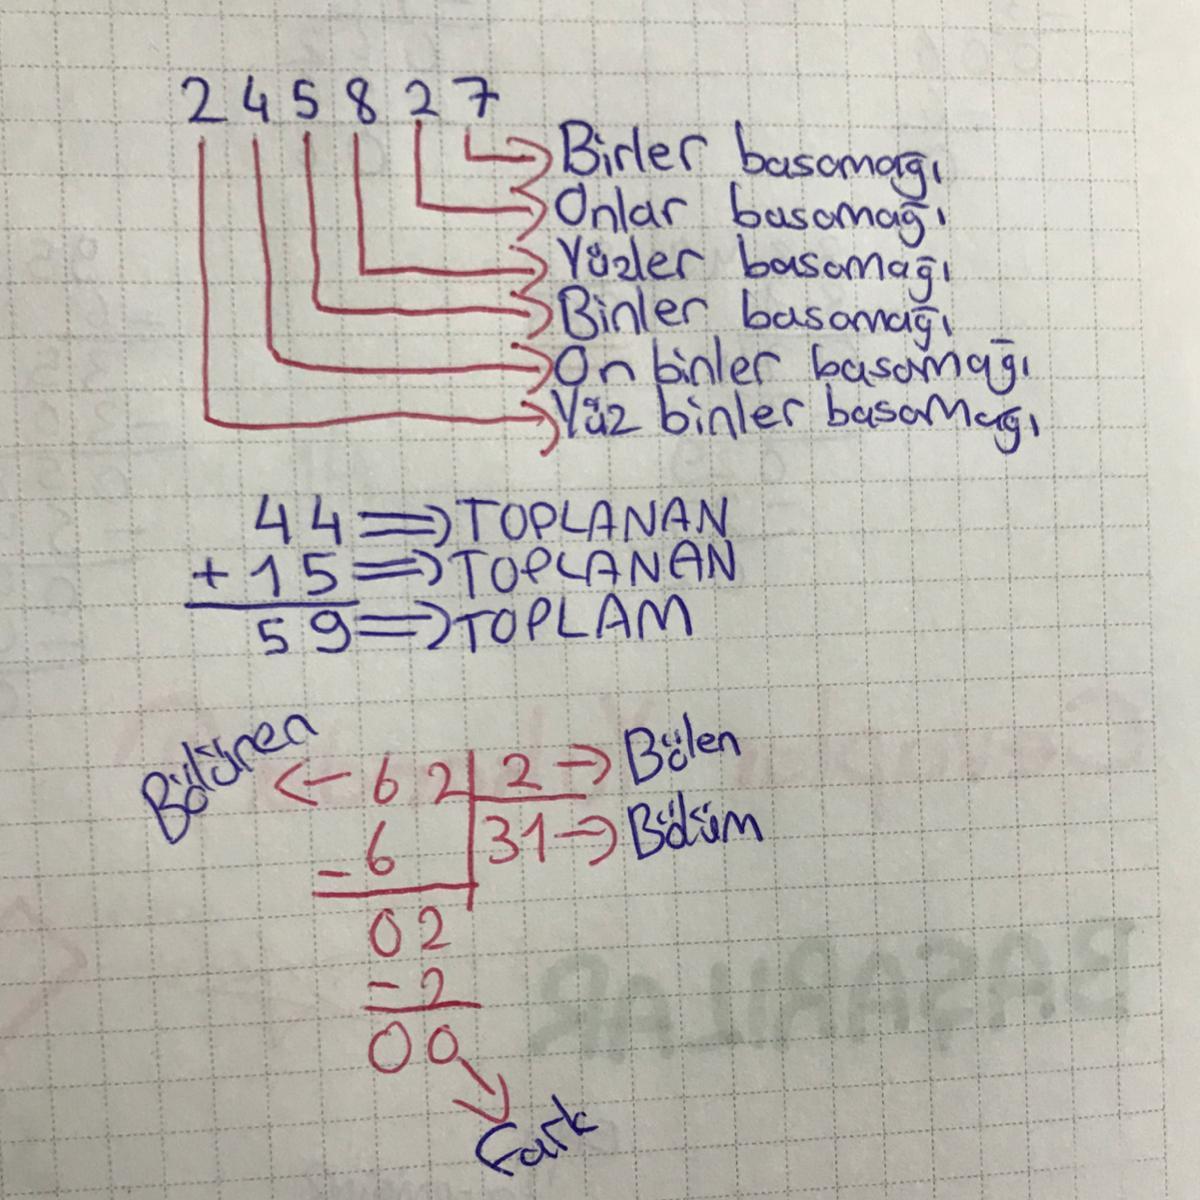 2 4 5 8 2 7
Birler basamağı
Onlar basamağı
Yüzler basamağı
Binler basamağı
On binler basamağı
Yüz binler basamağı
44 ⇒ TOPLANAN
+ 15 ⇒ TOPLANAN
59 ⇒ TOPLAM
Bölünen ← 62 2 → Bölen
- 6 31 → Bölüm
02
- 2
00
Fark
BAŞARILAR